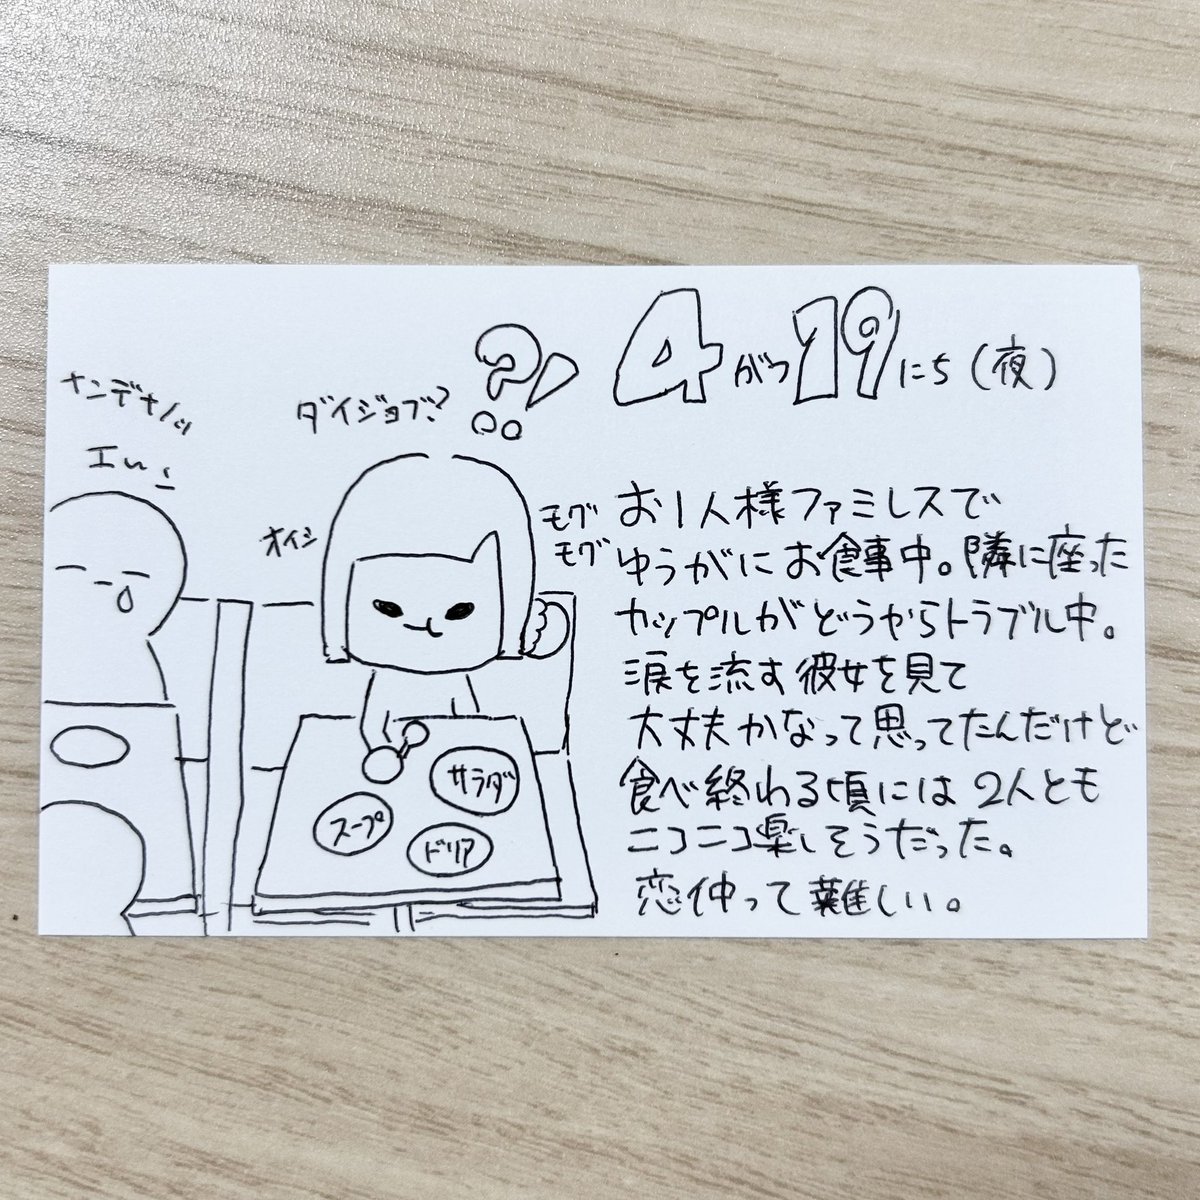 4がつ19にち(夜)
ナンデナノ
エーン
ダイジョブ?
?!
オイシ
モグ
モグ
サラダ
スープ
ドリア
お1人様ファミレスで
ゆうがにお食事中。隣に座った
カップルがどうやらトラブル中。
涙を流す彼女を見て
大丈夫かなって思ってたんだけど
食べ終わる頃には2人とも
ニコニコ楽しそうだった。
恋仲って難しい。